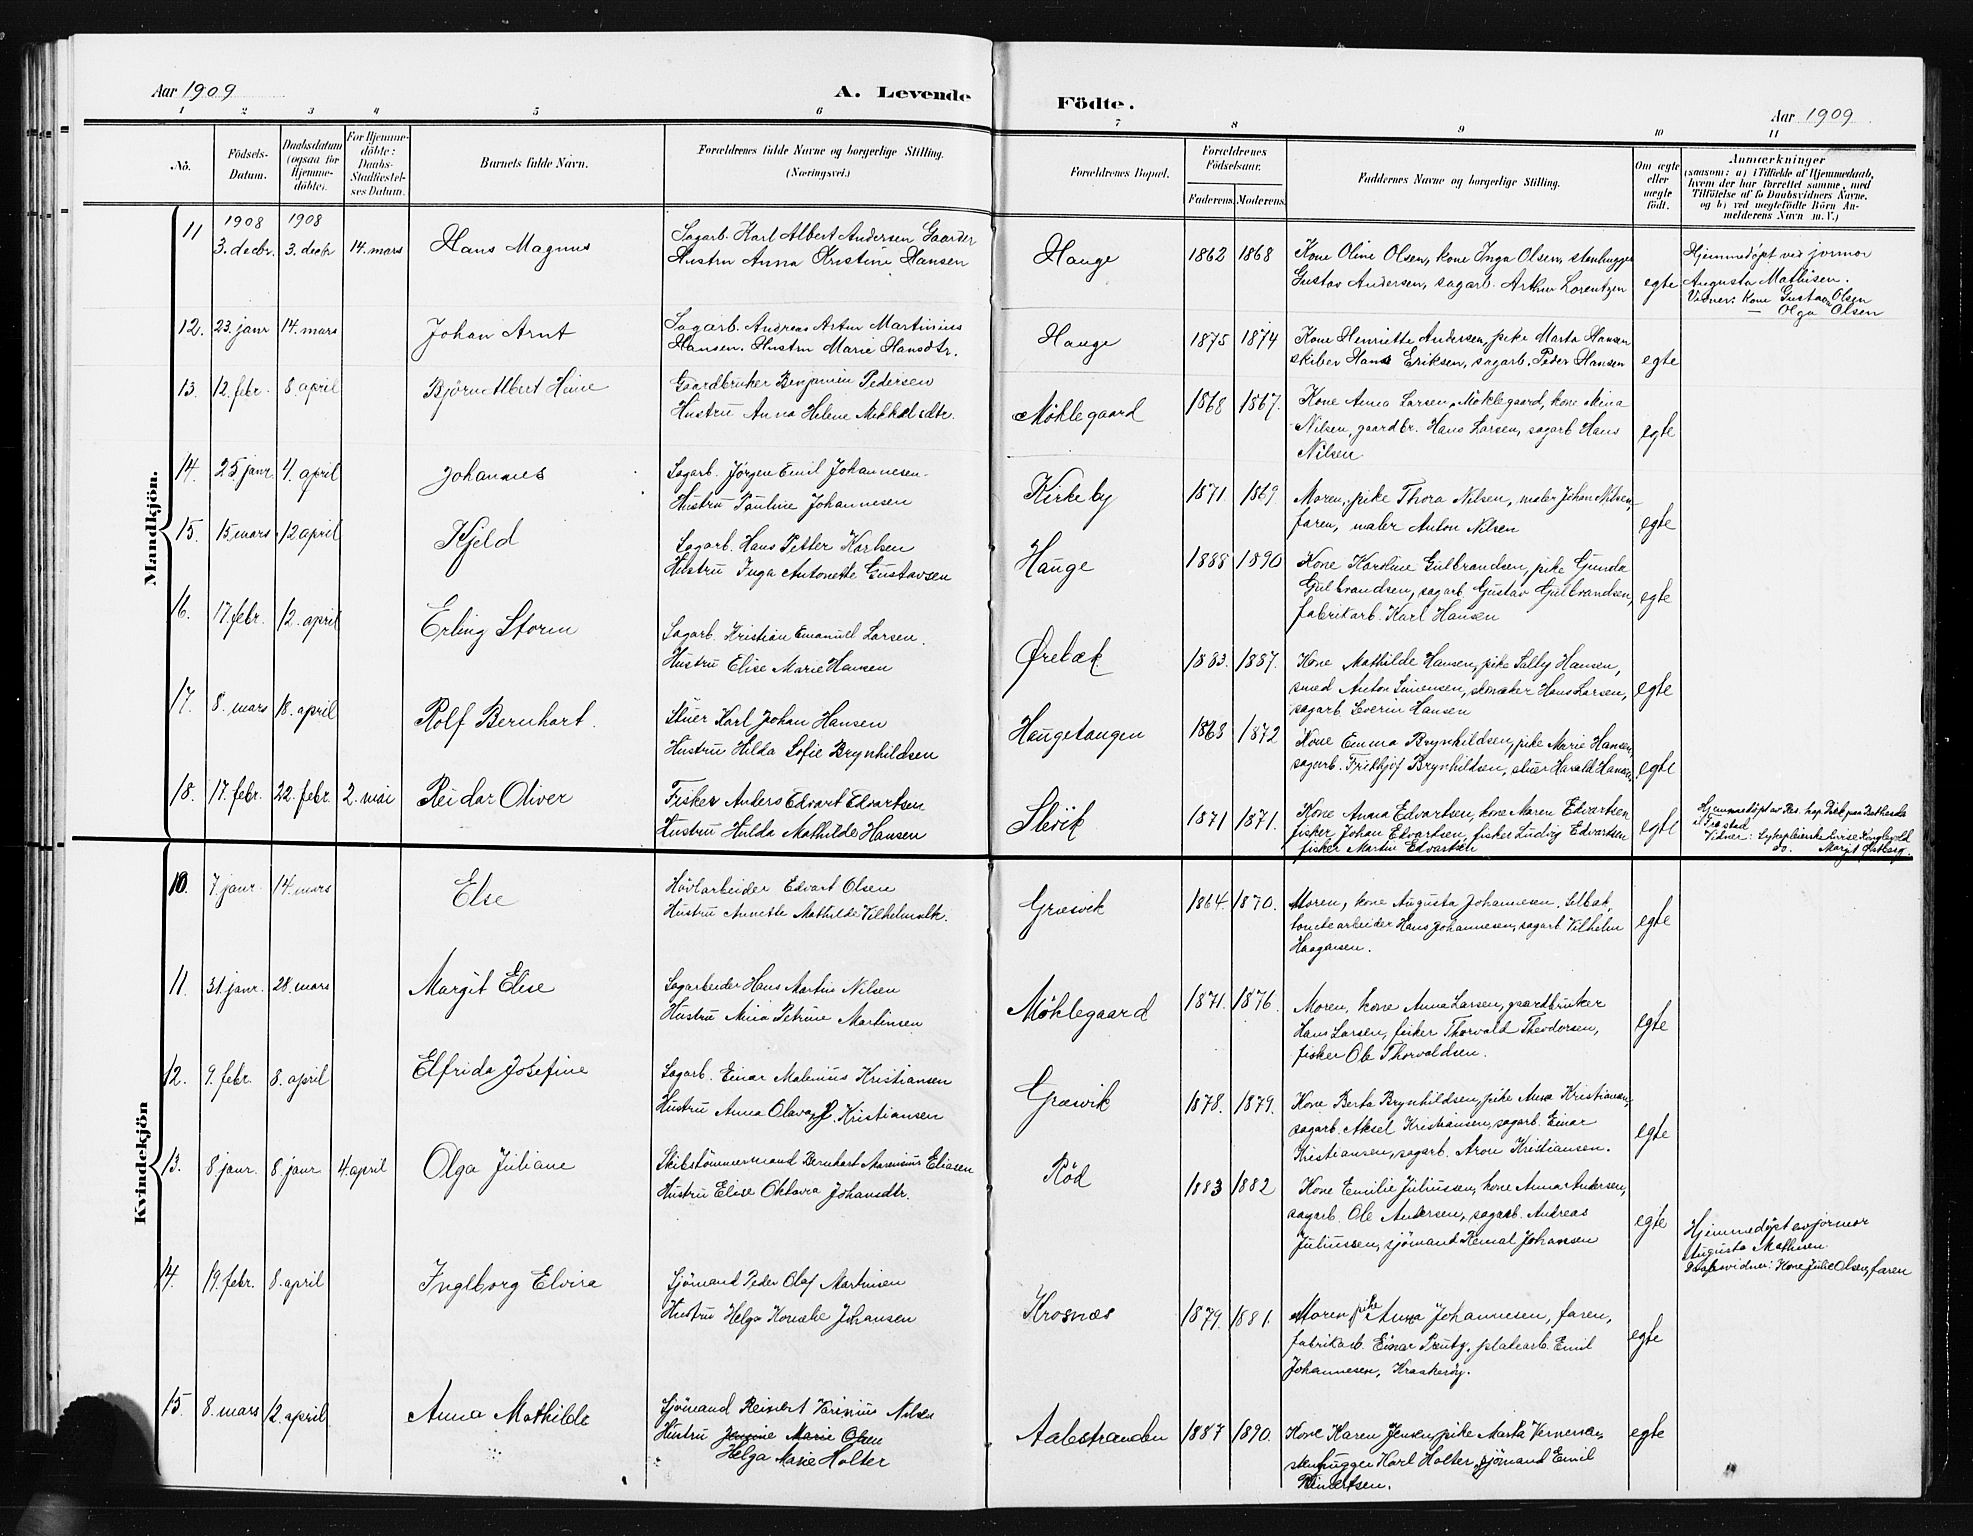 Aar 1909
A. Levende Födte.
Aar 1909
1 2 3 4 5 6 7 8 9 10 11
No.
Födsels-Datum.
Daabsdatum (ogsaa for Hjemme-döbte).
For Hjemme-döbte: Daabs-Stadfæstel-ses Datum.
Barnets fulde Navn.
Forældrenes fulde Navne og borgerlige Stilling. (Næringsvei.)
Forældrenes Bopæl.
Forældrenes Födselsaar.
Faderens. Moderens.
Faddernes Navne og borgerlige Stilling.
Om ægte eller uægte födt.
Anmærkninger
(saasom: a) i Tilfælde af Hjemmedaab,
hvem der har forrettet samme, med
Tilföielse af to Daabsvidners Navne,
og b) ved uægtefödte Börn An-
melderens Navn m. V.)
Mandkjön.
11 1908 3. decbr. 1908 3. decbr 14. mars Hans Magnus
Sagarb. Karl Albert Andersen Gaarder
Hustru Anna Kristine Hansen
Hauge 1862 1868
Kone Oline Olsen, kone Inga Olsen, stenhugger
Gustav Andersen, sagarb. Arthur Lorentzen
egte
Hjemmedøpt ved jormor
Augusta Mathisen.
Vidner: Kone Gustava Olsen
— Olga Olsen
12. 23. janr 14. mars Johan Arnt
Sagarb. Andreas Artur Martinius
Hansen. Hustru Marie Hansdtr.
Hauge 1875 1874
Kone Henriette Andersen, pike Marta Hansen
skiber Hans Eriksen, sagarb. Peder Hansen
egte
13. 12. febr. 8. april Bjørn Albert Hine
Gaardbruker Benjamin Pedersen
Hustru Anna Helene Mikkelsdtr.
Møklegaard 1868 1867.
Kone Anna Larsen, Møklegaard, kone Mina
Nilsen, gaardbr. Hans Larsen, sagarb Hans
Nilsen
egte
14. 25. janr. 4. april Johannes
Sagarb. Jørgen Emil Johannesen.
Hustru Pauline Johannesen
Kirkeby 1871 1869
Moren, pike Thora Nilsen, maler Johan Nilsen,
faren, maler Anton Nilsen
egte
15. 15. mars 12 april Kjeld
Sagarb. Hans Petter Karlsen
Hustru Inga Antonette Gustavsen
Hauge 1888 1890
Kone Karoline Gulbrandsen, pike Gunda
Gulbrandsen, sagarb. Gustav Gulbrandsen,
fabrikarb. Karl Hansen
egte
16. 17. febr. 12. april Erling Storm
Sagarb. Kristian Emanuel Larsen.
Hustru Elise Marie Hansen
Ørebæk 1883. 1887.
Kone Mathilde Hansen, pike Sally Hansen,
smed Anton Simensen, skomaker Hans Larsen,
sagarb. Severin Hansen
egte
17. 8. mars 18. april Rolf Bernhart.
Stuer Karl Johan Hansen
Hustru Hilda Sofie Brynhildsen
Haugetangen 1868 1872
Kone Emma Brynhildsen, pike Marie Hansen,
sagarb. Fridthjof Brynhildsen, stuer Harald Hansen
egte
18. 17. febr. 22. febr. 2. mai Reidar Oliver
Fisker Anders Edvart Edvartsen
Hustru Hulda Mathilde Hansen
Slevik 1871 1871.
Kone Anna Edvartsen, kone Maren Edvartsen
fisker Johan Edvartsen, fisker Ludvig Edvartsen
fisker Martin Edvartsen
egte
Hjemmedøpt av Res. kap. Fisk paa Bethesda
i Fr.stad
Vidner: Sykepleierske
do. Margit Østberg.
Kvindekjön
10. 7. janr. 14. mars Else
Høvlarbeider Edvart Olsen
Hustru Annette Mathilde
Græsvik 1864. 1870.
Moren, kone Augusta Johannesen. Selbak,
tomtearbeider Hans Johannesen, sagarb Vilhelm
Haagensen.
egte
11. 31. janr. 28. mars Margit Elise
Sagarbeider Hans Martin Nilsen
Hustru Mina Petrine Martinsen
Møklegaard 1871. 1876.
Moren, kone Anna Larsen, gaardbruker
Hans Larsen, fisker Thorvald Theodorsen,
fisker Ole Thorvaldsen.
egte
12. 9. febr. 8. april Elfrida Josefine
Sagarb. Einar Malenius Kristiansen
Hustru Anna Olava f. Kristiansen
Græsvik 1878. 1879.
Kone Berta Brynhildsen, pike Anna Kristiansen,
sagarb. Aksel Kristiansen, sagarb. Einar
Kristiansen, sagarb. Aron Kristiansen.
egte
13. 8. janr. 8. janr 4. april Olga Juliane
Skibstømmermand Bernhart Aarenius Eliasen
Hustru Elise Oktavia Johansdtr.
Rød 1883 1882
Kone Emilie Juliussen, kone Anna Andersen,
sagarb. Ole Andersen, sagarb. Andreas
Juliussen, sjømand Johansen
egte
Hjemmedøpt av jormor
Augusta Mathisen.
Daabsvidner: Kone Julie Olsen, faren
14. 19. febr. 8. april Ingeborg Elvira
Sjømand Peder Olaf Martinsen
Hustru Helga Johansen
Krosnæs 1879. 1881.
Moren, pike Anna Johannesen, faren,
fabrikarb. Einar Prutz, platearb. Emil
Johannesen, Kraakerøy.
egte
15. 8. mars 12. april Anna Mathilde
Sjømand Reinert Karinius Nilsen
Hustru Jennie Marie Olsen
Helga Marie Holter
Aalestranden 1887 1890.
Kone Karen Jensen, pike Marta
stenhugger Karl Holter, sjømand Emil
Reinertsen.
egte